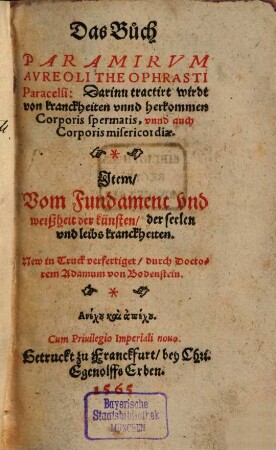 Das Bůch
PARAMIRVM
AVREOLI THEOPHRASTI
Paracelsi: Darinn tractirt wirdt
von kranckheiten vnnd herkommen
Corporis spermatis, vnnd auch
Corporis misericordiæ.
Item/
Vom Fundament vnd
weißheit der künsten/ der seelen
vnd leibs kranckheiten.
New in Truck verfertiget/ durch Docto-
rem Adamum von Bodenstein.
Ανέχου καὶ ἀπέχου.
Cum Priuilegio Imperiali nouo.
Getruckt zu Franckfurt/ bey Chri.
Egenolffs Erben.
1565
Bayerische
Staatsbibliothek
MÜNCHEN